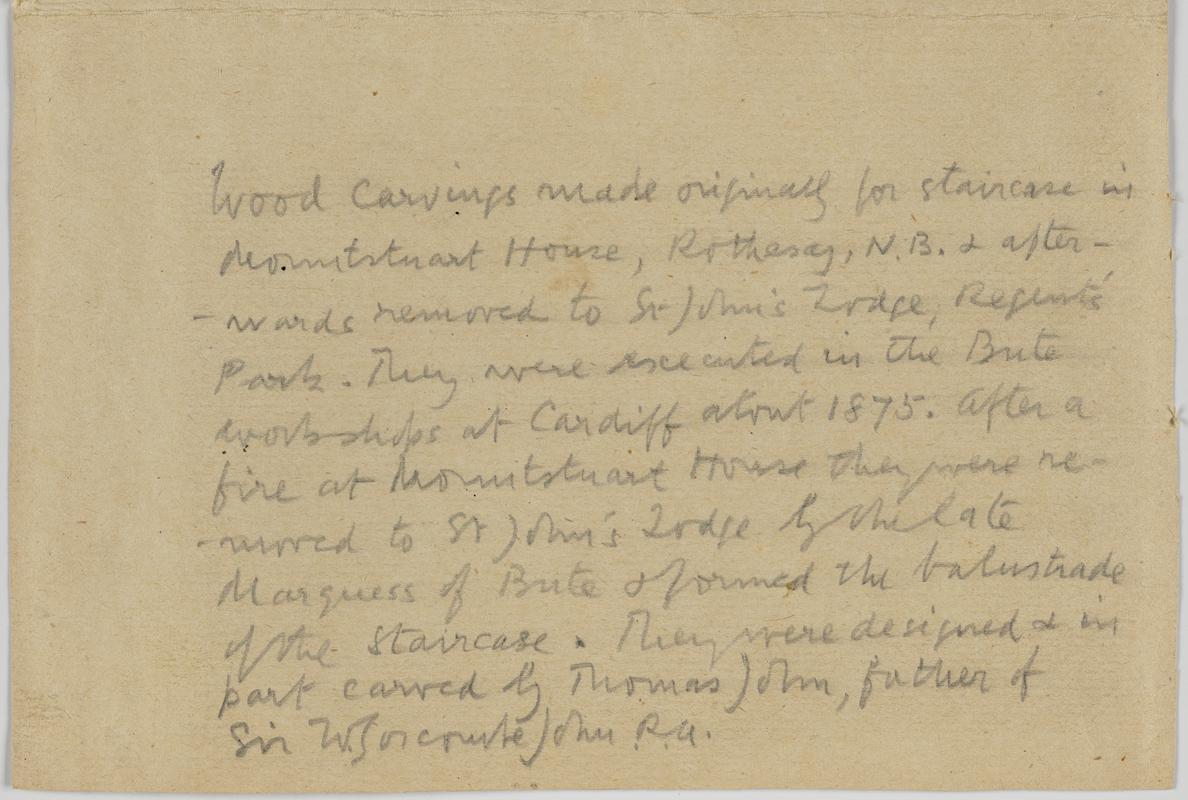 Wood Carvings made originally for staircase in
Mountstuart House, Rothesay, N.B. & after-
- wards removed to St John's Lodge, Regent's
Park. They were executed in the Bute
workshops at Cardiff about 1875. After a
fire at Mountstuart House they were re-
- moved to St John's Lodge by the late
Marquess of Bute & formed the balustrade
of the Staircase. They were designed & in
part carved by Thomas John, father of
Sir W. Goscombe John R.A.